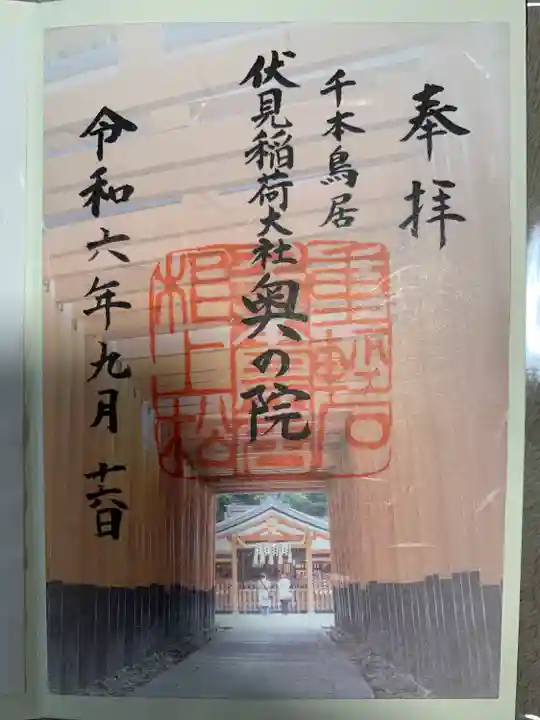 奉拝
千本鳥居
伏見稲荷大社奥の院
令和六年九月廾六日